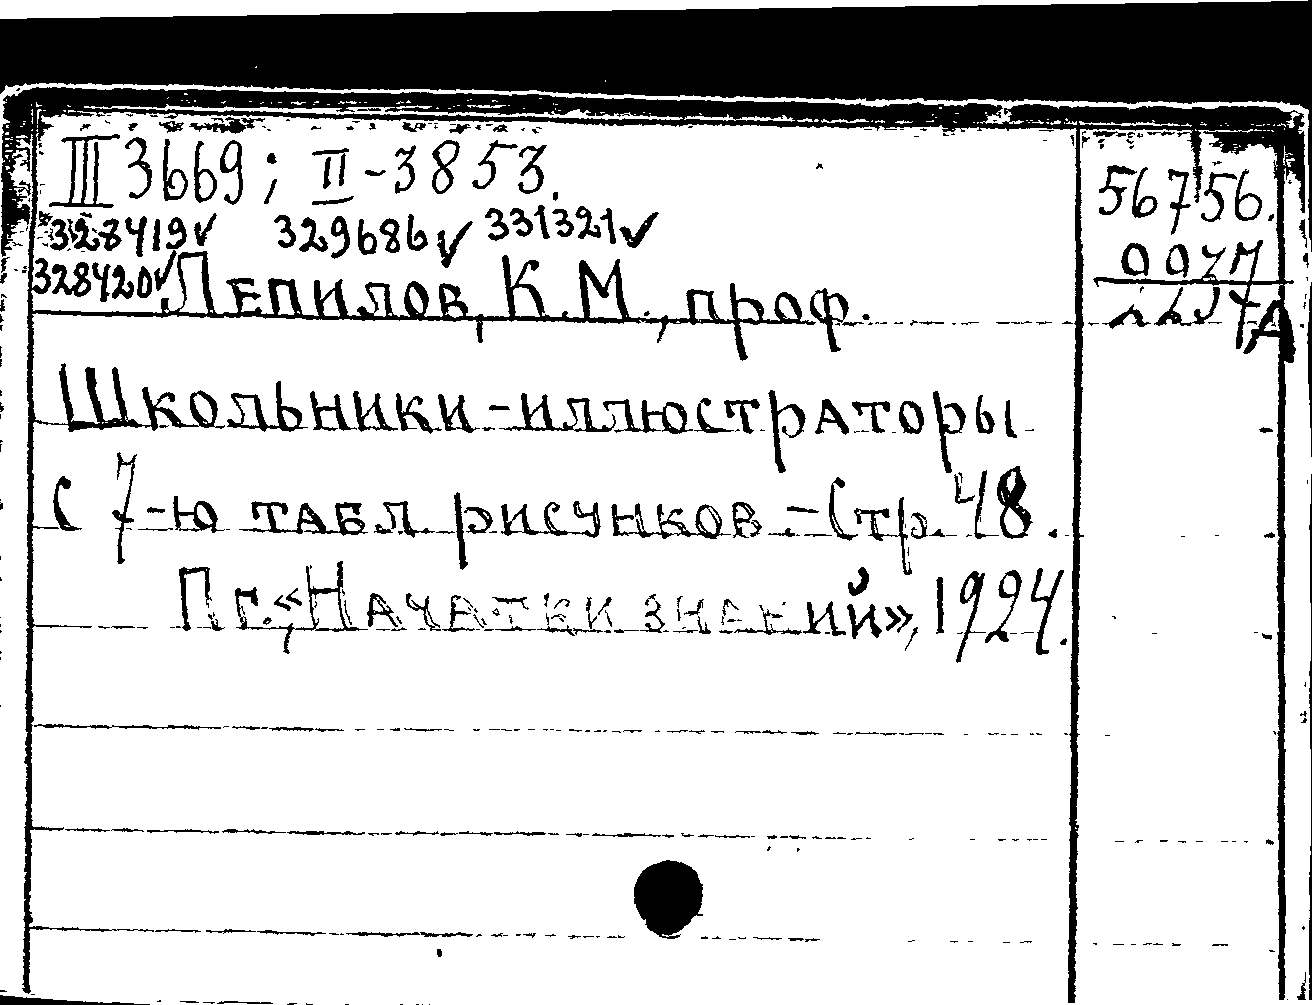 III 3669; II-3853.
56756.
328419✓ 329686✓ 331321✓
328420✓ Лепилов, К.М., проф.
А
Школьники-иллюстраторы
С 7-ю табл. рисунков.-Стр. 48.
Пг., «Начатки знаний», 1924.